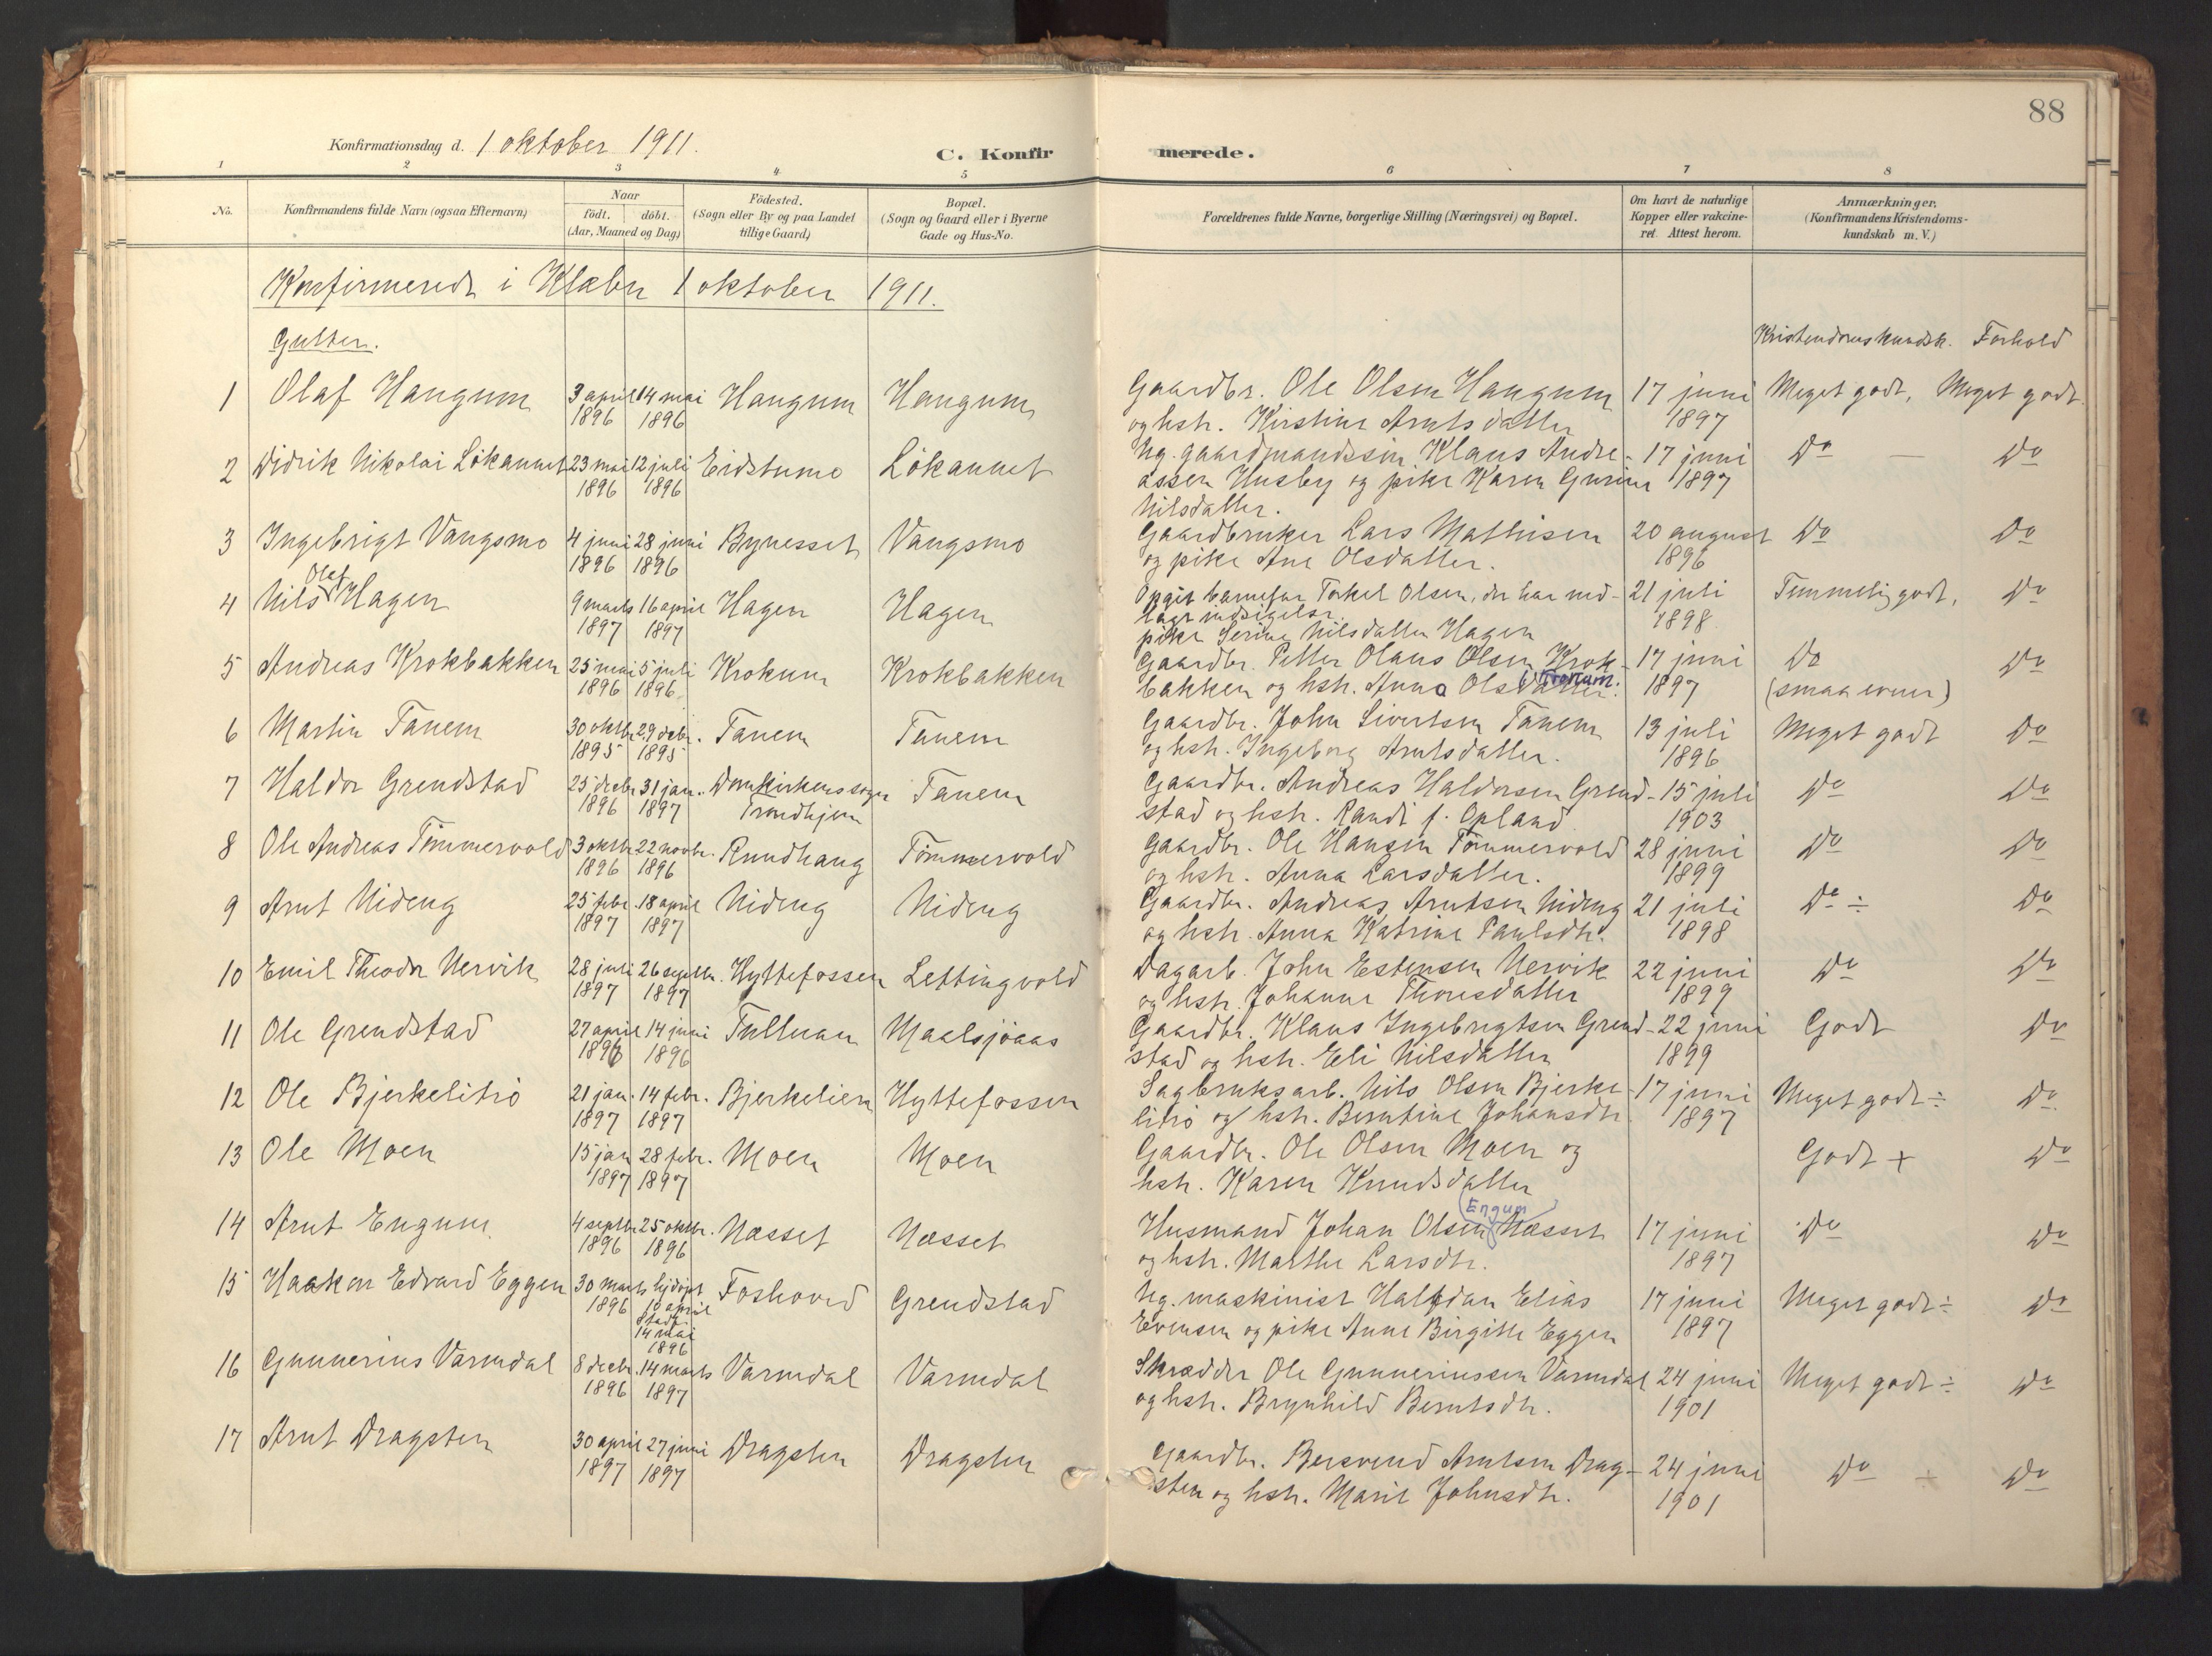 88
Konfirmationsdag d. 1 oktober 1911.
C. Konfirmerede.
1 2 3 4 5 6 7 8
No.
Konfirmandens fulde Navn (ogsaa Efternavn)
Naar
födt. döbt.
(Aar, Maaned og Dag)
Födested.
(Sogn eller By og paa Landet
tillige Gaard)
Bopæl.
(Sogn og Gaard eller i Byerne
Gade og Hus-No.
Forældrenes fulde Navne, borgerlige Stilling (Næringsvei) og Bopæl.
Om havt de naturlige
Kopper eller vakcine-
ret. Attest herom.
Anmærkninger.
(Konfirmandens Kristendoms-
kundskab m. V.)
Konfirmerede i Klæbu 1 oktober 1911.
Gutter.
Kristendomskundsk. Forhold
1 Olaf Haugum 3 april 1896 14 mai 1896 Haugum Haugum Gaardbr. Ole Olsen Haugum 17 juni 1897 Meget godt, Meget godt.
og hstr. Kirstine Arntsdatter
2 Didrik Nikolai Lökaunet 23 mai 1896 12 juli 1896 Eidstumo Lökaunet Ug. gaardmandssön Klaus Andre- 17 juni 1897 Do — Do
assen Husby og pike Karen Gurine
Nilsdatter.
3 Ingebrigt Vangsmo 4 juni 1896 28 juni 1896 Bynesset Vangsmo Gaardbruker Lars Mathisen 20 august 1896 Do Do
og pike Ane Olsdatter.
4 Nils Olaf Hagen 9 marts 1897 16 april 1897 Hagen Hagen Opgit barnefar Torkel Olsen, der har ned- 21 juli 1898 Temmelig godt, Do
lagt indsigelse.
pike Serine Nilsdatter Hagen
5 Andreas Krokbakken 25 mai 1896 5 juli 1896 Krokum Krokbakken Gaardbr. Petter Olaus Olsen Krok- 17 juni 1897 Do Do
bakken og hstr. Anna Olsdatter. (smaa evner)
6 Martin Tanem 30 oktbr 1895 29 debr. 1895 Tanem Tanem Gaardbr. John Sivertsen Tanem 13 juli 1896 Meget godt Do
og hstr. Ingeborg Arntsdatter.
7 Haldor Grendstad 25 decbr 1896 31 jan. 1897 Domkirkens sogn Trondhjem Tanem Gaardbr. Andreas Haldorsen Grend- 15 juli 1903 Do Do
stad og hstr. Randi f. Opland
8 Ole Andreas Tömmervold 3 oktbr 1896 22 novbr. 1896 Rundhaug Tömmervold Gaardbr. Ole Hansen Tömmervold 28 juni 1899 Do Do
og hstr. Anna Larsdatter.
9 Arnt Nideng 25 febr. 1897 18 april 1897 Nideng Nideng Gaardbr. Andreas Arntsen Nideng 21 juli 1898 Do ÷ Do
og hstr. Anna Katrine Paulsdtr.
10 Emil Theodor Nervik 28 juli 1897 26 septbr. 1897 Hyttefossen Lettingvold Dagarb. John Estensen Nervik 22 juni 1899 Do Do
og hstr. Johanna Thoresdatter
11 Ole Grendstad 27 april 1896 14 juni 1896 Tulluan Maalsjöaas Gaardbr. Klaus Ingebrigtsen Grend- 22 juni 1899 Godt Do
stad og hstr. Eli Nilsdatter
12 Ole Bjerkelitrö 21 jan. 1897 14 febr. 1897 Bjerkelien Hyttefossen Sagbruksarb. Nils Olsen Bjerke- 17 juni 1897 Meget godt ÷ Do
litrö og hstr. Berntine Johansdtr
13 Ole Moen 15 jan 1897 28 febr. 1897 Moen Moen Gaardbr. Ole Olsen Moen og Godt + Do
hstr. Karen Knudsdatter
14 Arnt Engum 4 septbr 1896 25 oktbr. 1896 Næsset Næsset Husmand Johan Olsen (Engum) Næsset 17 juni 1897 Do Do
og hstr. Marthe Larsdtr.
15 Haakon Edvard Eggen 30 marts 1896 hjdöpt 10 april stadf. 14 mai 1896 Foshoved Grendstad Ug. maskinist Halfdan Elias 17 juni 1897 Meget godt ÷ Do
Evensen og pike Anne Birgitte Eggen
16 Gunnerius Varmdal 8 decbr. 1896 14 marts 1897 Varmdal Varmdal Skrædder Ole Gunneriussen Varmdal 24 juni 1901 Meget godt ÷ Do
og hstr. Brynhild Berntsdtr.
17 Arnt Dragsten 30 april 1897 27 juni 1897 Dragsten Dragsten Gaardbr. Bersvend Arntsen Drag- 24 juni 1901 Do + Do
sten og hstr. Marit Johnsdtr.